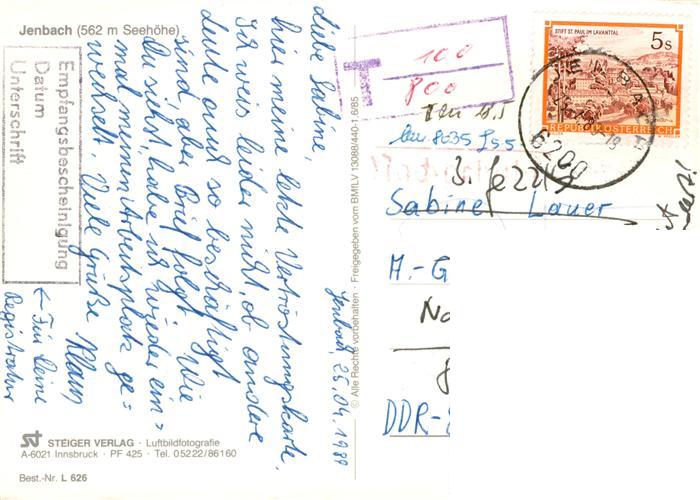 Jenbach (562 m Seehöhe)
Empfangsbescheinigung
Datum
Unterschrift
Jenbach, 25.04.1988
Liebe Sabine,
hier meine letzte Vertröstungskarte.
Ich weis leider nicht, ob andere
Leute auch so beschäftigt
sind, aber Brief folgt. Wie
Du siehst, habe ich wieder ein=
mal meinen Arbeitsplatz ge=
wechselt. Viele Grüße Klaus
← Für Deine
Registratur
STEIGER VERLAG · Luftbildfotografie
A-6021 Innsbruck · PF 425 · Tel. 05222/86160
Best.-Nr. L 626
© Alle Rechte vorbehalten · Freigegeben vom BMfLV 13088/440-1.6/85
T
100
800
STIFT ST. PAUL IM LAVANTTAL
5 s
REPUBLIK ÖSTERREICH
6200
Sabine Lauer
M.-G
No
DDR-